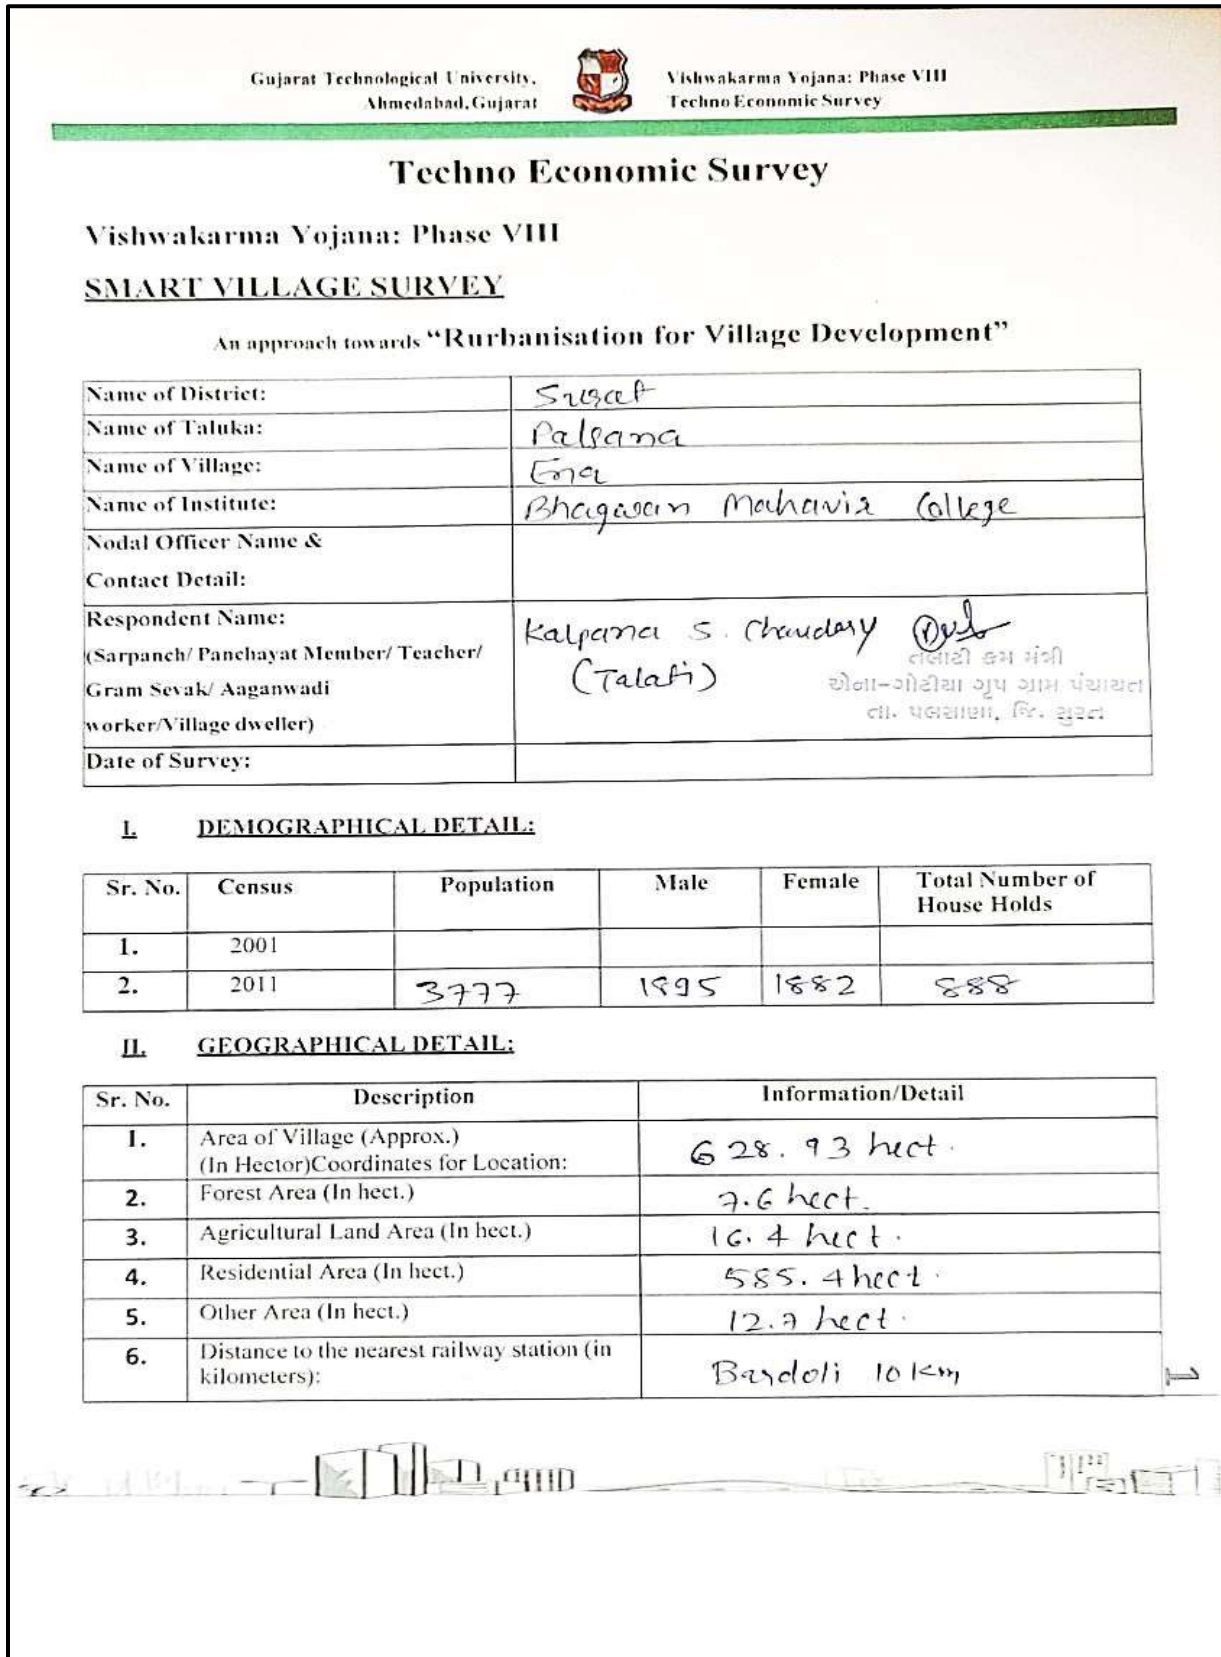 Gujarat Technological University,
Ahmedabad, Gujarat
Vishwakarma Yojana: Phase VIII
Techno Economic Survey
Techno Economic Survey
Vishwakarma Yojana: Phase VIII
SMART VILLAGE SURVEY
An approach towards “Rurbanisation for Village Development”
Name of District: Surat
Name of Taluka: Palsana
Name of Village: Ena
Name of Institute: Bhagwan Mahavir College
Nodal Officer Name &
Contact Detail:
Respondent Name: Kalpana S. Chaudary
(Sarpanch/ Panchayat Member/ Teacher/ (Talati)
Gram Sevak/ Aaganwadi
worker/Village dweller)
તલાટી કમ મંત્રી
એના-ગોટીયા ગૃપ ગ્રામ પંચાયત
તા. પલસાણા, જિ. સુરત
Date of Survey:
I. DEMOGRAPHICAL DETAIL:
Sr. No. Census Population Male Female Total Number of
House Holds
1. 2001
2. 2011 3777 1895 1882 888
II. GEOGRAPHICAL DETAIL:
Sr. No. Description Information/Detail
1. Area of Village (Approx.)
(In Hector)Coordinates for Location: 628.93 hect.
2. Forest Area (In hect.) 7.6 hect.
3. Agricultural Land Area (In hect.) 16.4 hect.
4. Residential Area (In hect.) 585.4 hect.
5. Other Area (In hect.) 12.7 hect.
6. Distance to the nearest railway station (in
kilometers): Bardoli 10 km
1